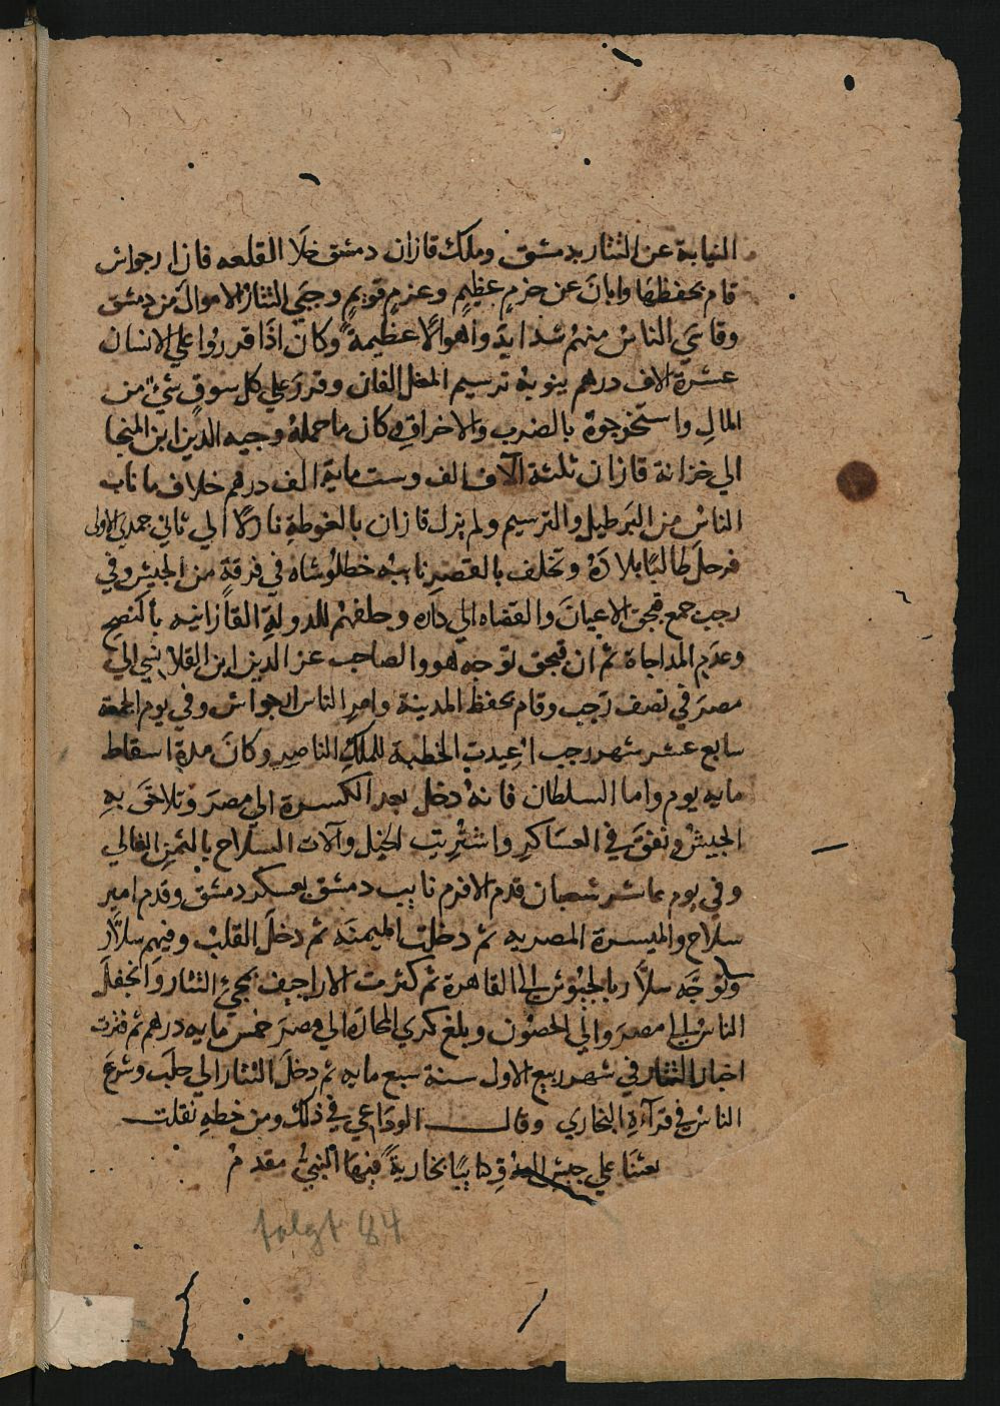 النيابة عن التتار بدمشق وملك قازان دمشق خلا القلعه فان ارجواش
قام بحفظها وابان عن حزم عظيم وعزم قويم وجبي التتار الاموال من دمشق
وقاسي الناس منهم شدايد واهوالا عظيمة وكان اذا قرروا علي الانسان
عشرة الاف درهم ينوبه ترسيم المغل الفان وقرر علي كل سوق شيء من
المال واستخرجوه بالضرب والاخراق وكان ما حمله وجيه الدين ابن المنجا
الي خزانة قازان ثلثة آلاف الف وست ماية الف درهم خلاف ما ناب
الناس من البرطيل والترسيم ولم يزل قازان بالغوطة نازلا الي ثاني جمدي الاولى
فرحل طالبا بلاده وتخلف بالقصر نايبه خطلوشاه في فرقة من الجيش وفي
رجب جمع قبجق الاعيان والقضاه الي داره وحلفهم للدولة القازانيه بالنصح
وعدم المداجاة ثم ان قبجق توجه هو والصاحب عز الدين ابن القلانسي الي
مصر في نصف رجب وقام بحفظ المدينة وامر الناس ارجواش وفي يوم الجمعة
سابع عشر شهر رجب اعيدت الخطبة للملك الناصر وكان مدة اسقاط
مايه يوم واما السلطان فانه دخل بعد الكسرة الي مصر وتلاحق به
الجيش ونفق في العساكر واشتريت الخيل وآلات السلاح بالثمن الغالي
وفي يوم عاشر شعبان قدم الافرم نايب دمشق بعسكر دمشق وقدم امير
سلاح والميسرة المصريه ثم دخلت الميمنه ثم دخل القلب وفيهم سلار
وتوجه سلار بالجيوش الي القاهرة ثم كثرت الاراجيف بمجي التتار وانجفل
الناس الي مصر والي الحصون وبلغ كري المحارة الي مصر خمس مايه درهم ثم فترت
اخبار التتار في شهر ربيع الاول سنة سبع مايه ثم دخل التتار الي حلب وشرع
الناس في قرآة البخاري وقال الوداعي في ذلك ومن خطه نقلت
بعثنا علي جيش العدو كتايبا بخارية فيها النبي مقدم
folgt 84